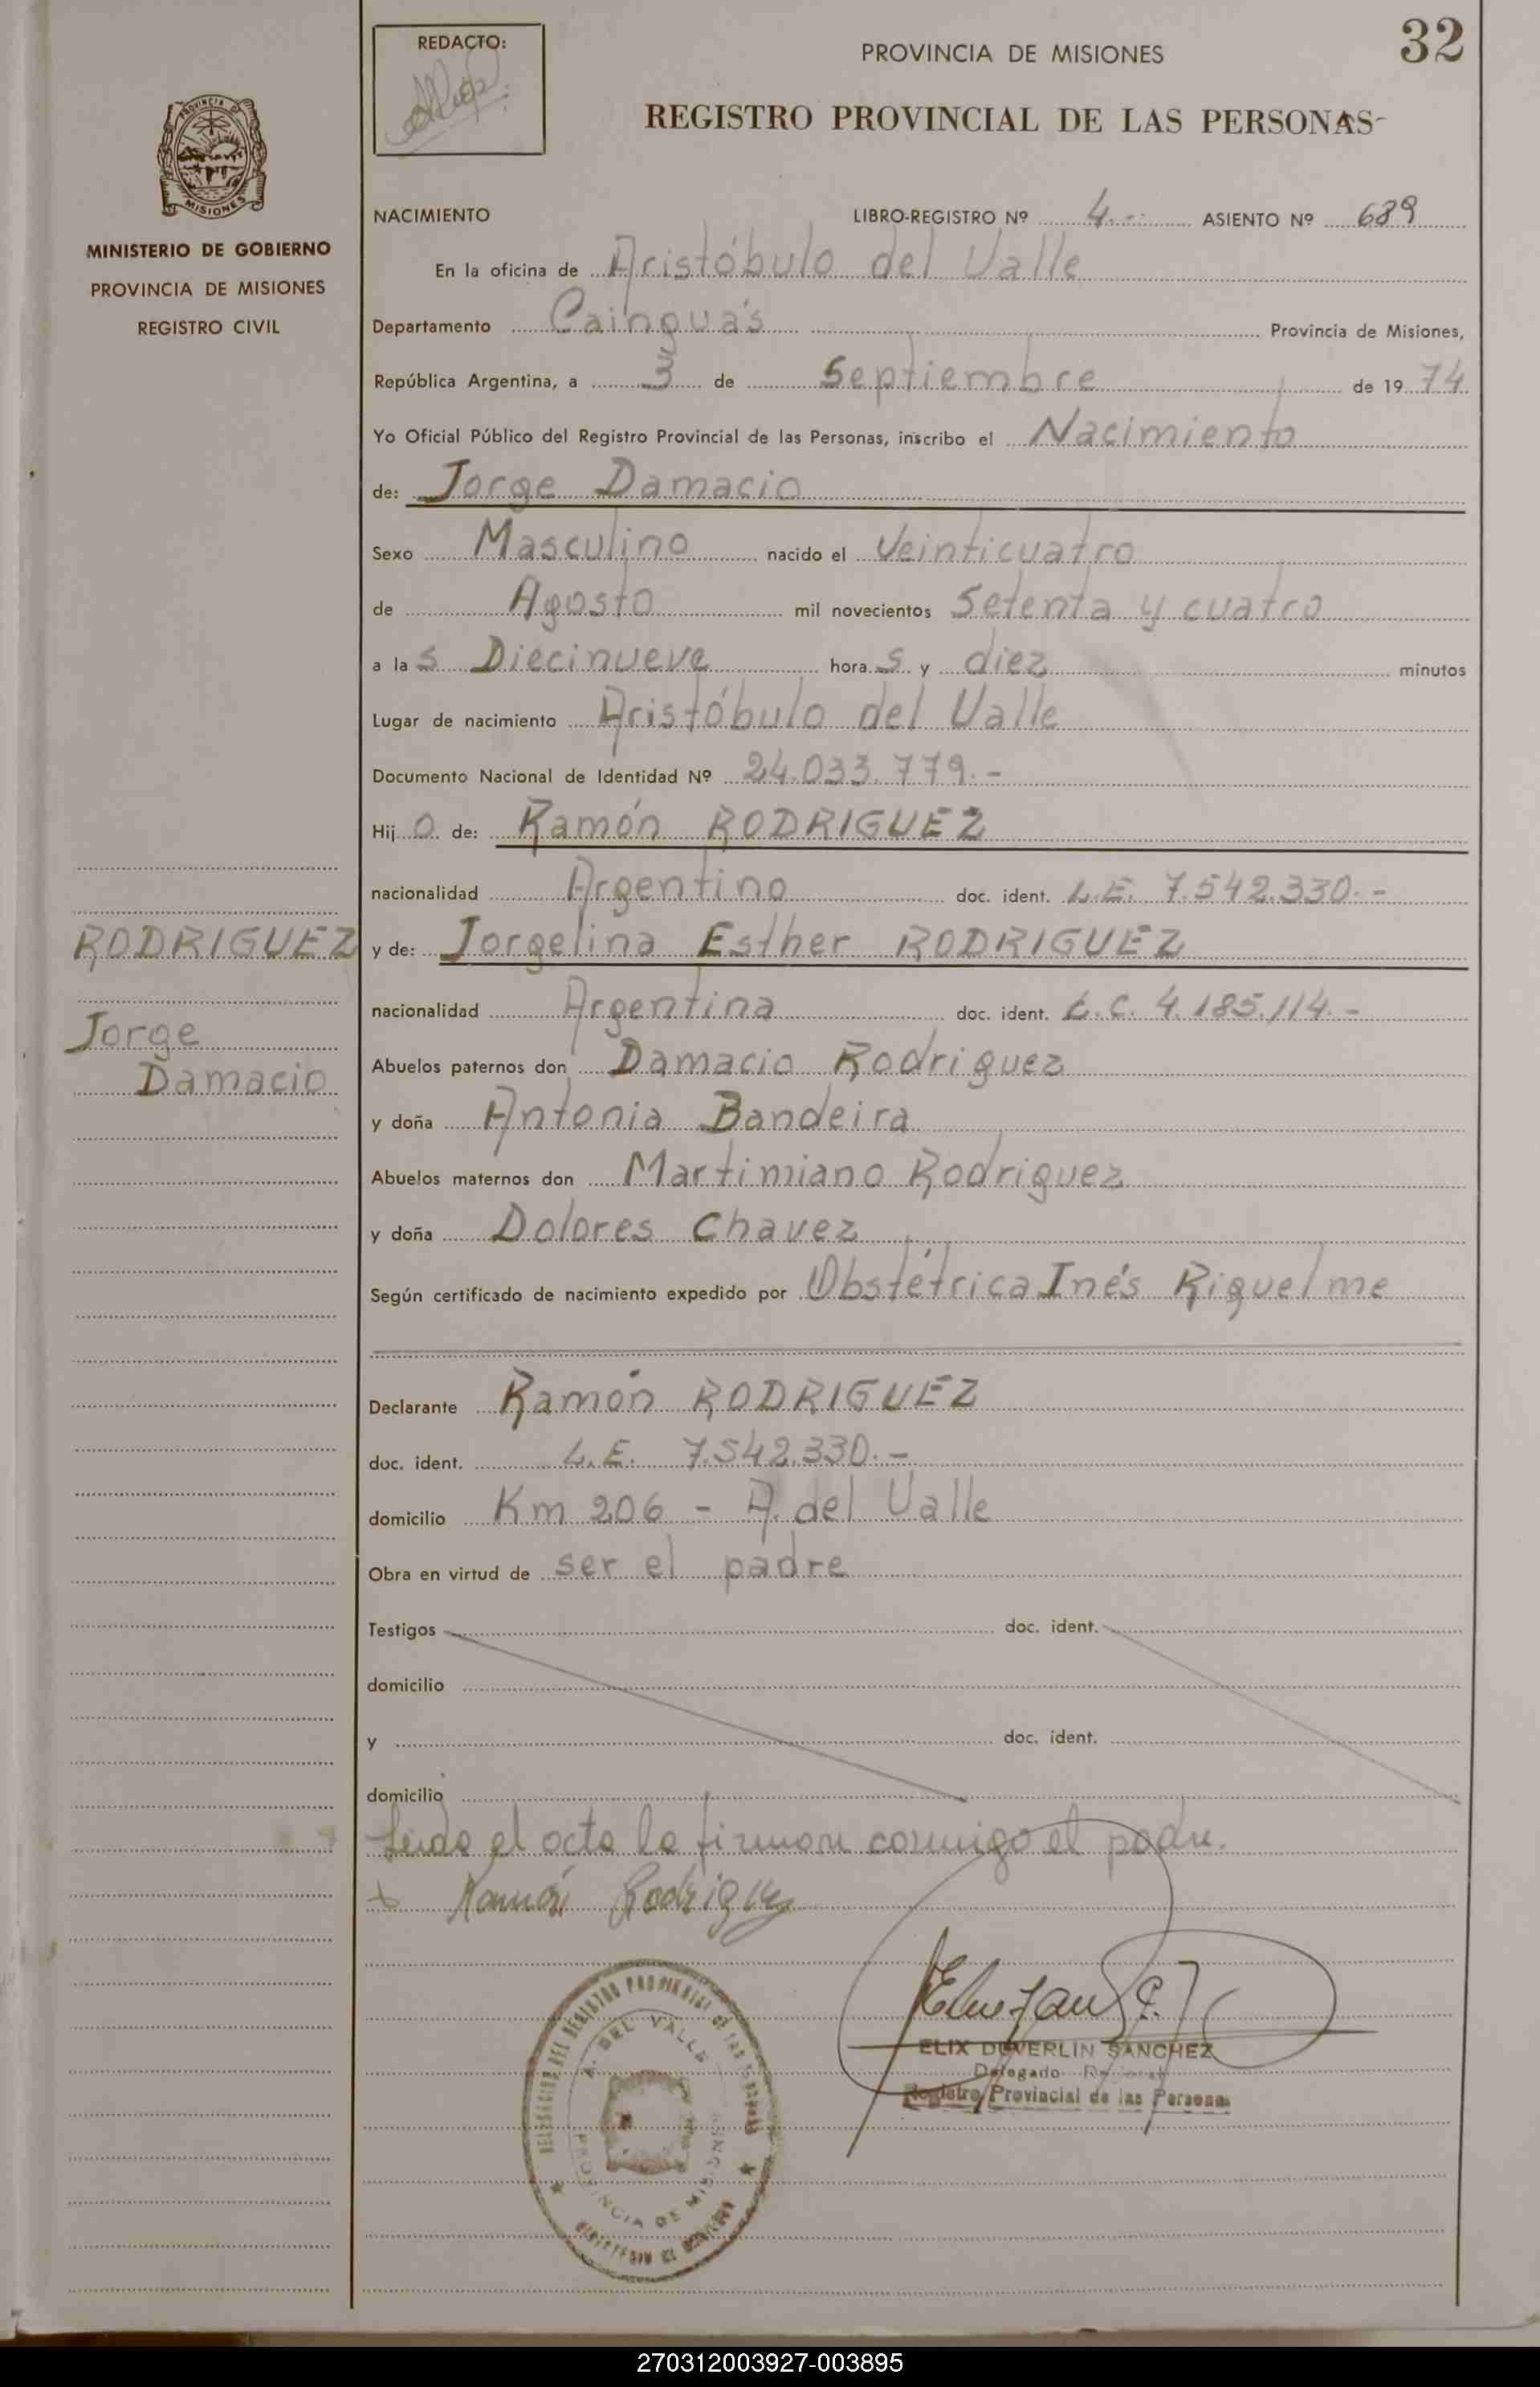 32
REDACTO:
PROVINCIA DE MISIONES
REGISTRO PROVINCIAL DE LAS PERSONAS
MISIONES
MINISTERIO DE GOBIERNO
PROVINCIA DE MISIONES
REGISTRO CIVIL
NACIMIENTO LIBRO-REGISTRO Nº 4.- ASIENTO Nº 689
En la oficina de Aristóbulo del Valle
Departamento Cainguás Provincia de Misiones,
República Argentina, a 3 de Septiembre de 19 74
Yo Oficial Público del Registro Provincial de las Personas, inscribo el Nacimiento
de: Jorge Damacio
Sexo Masculino nacido el Veinticuatro
de Agosto mil novecientos Setenta y cuatro
a la s Diecinueve hora s y diez minutos
Lugar de nacimiento Aristóbulo del Valle
Documento Nacional de Identidad Nº 24.033.779.-
Hij o de: Ramón RODRIGUEZ
nacionalidad Argentino doc. ident. L.E. 7.542.330.-
RODRIGUEZ
y de: Jorgelina Esther RODRIGUEZ
nacionalidad Argentina doc. ident. L.C. 4.185.114.-
Jorge
Damacio
Abuelos paternos don Damacio Rodriguez
y doña Antonia Bandeira
Abuelos maternos don Martimiano Rodriguez
y doña Dolores Chavez
Según certificado de nacimiento expedido por Obstétrica Inés Riquelme
Declarante Ramón RODRIGUEZ
doc. ident. L.E. 7.542.330.-
domicilio Km 206 - A. del Valle
Obra en virtud de ser el padre
Testigos doc. ident.
domicilio
y doc. ident.
domicilio
Leida el acta la firman conmigo el padre.
Ramón Rodriguez
ELIX DUVERLIN SANCHEZ
Delegado
Registro Provincial de las Personas
DEL REGISTRO PROVINCIAL DE LAS PERSONAS
A. DEL VALLE
PROVINCIA DE MISIONES
MINISTERIO DE GOBIERNO
270312003927-003895